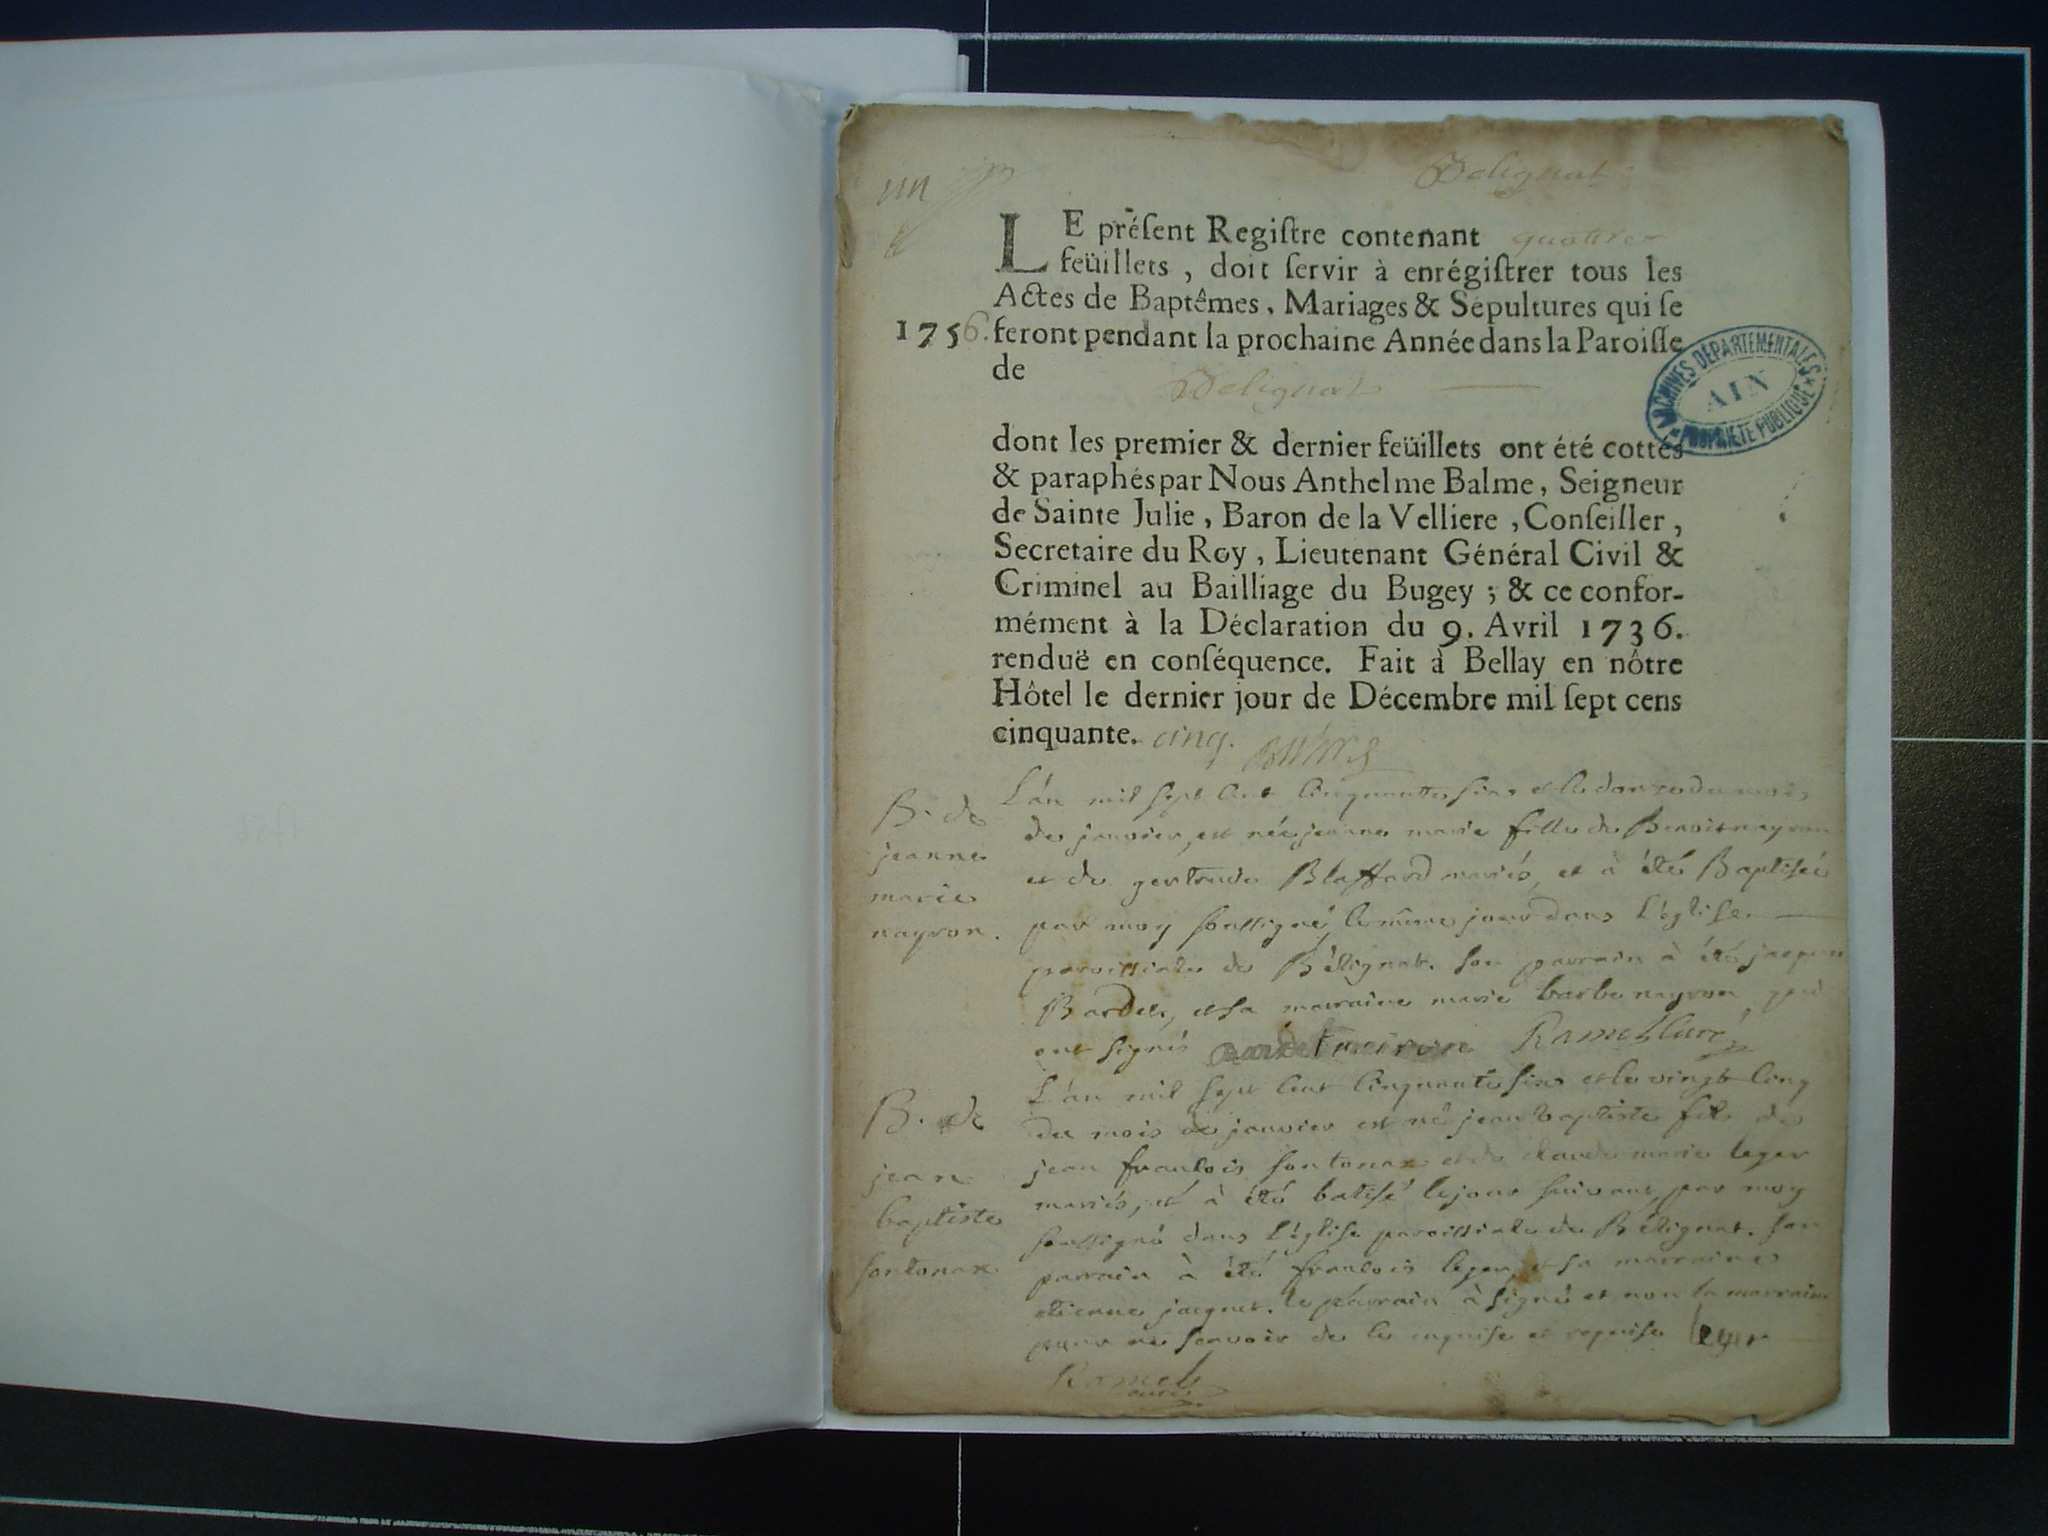 un
Belignat
LE préſent Regiſtre contenant quatre
feüillets, doit ſervir à enrégiſtrer tous les
Actes de Baptêmes, Mariages & Sépultures qui ſe
1756. feront pendant la prochaine Année dans la Paroiſſe
de Belignat
ARCHIVES DÉPARTEMENTALES
AIN
PROPRIÉTÉ PUBLIQUE
dont les premier & dernier feüillets ont été cottés
& paraphés par Nous Anthelme Balme, Seigneur
de Sainte Julie, Baron de la Velliere, Conſeiller,
Secretaire du Roy, Lieutenant Général Civil &
Criminel au Bailliage du Bugey; & ce confor-
mément à la Déclaration du 9. Avril 1736.
renduë en conſéquence. Fait à Bellay en nôtre
Hôtel le dernier jour de Décembre mil ſept cens
cinquante. cinq.
B. de
jeanne
marie
nayron.
L'an mil sept cent cinquante six et le douze du mois
de janvier, est née jeanne marie fille de Benoit nayron
et de gertrude Blaffard mariés, et à été Baptisée
par moy soussigné, le même jour dans l'église
paroissiale de Bélignat. son parrain à été jacques
Bardet, et sa marraine marie barbe nayron, qui
ont signés Bardet nairon Ramel Curé
B. de
jean
baptiste
sontonax
L'an mil sept cent cinquante six et le vingt cinq
du mois de janvier est né jean baptiste fils de
jean francois sontonax et de claude marie leger
mariés, et à été batisé le jour suivant, par moy
soussigné dans l'église paroissiale de Bélignat. son
parrain à été francois leger, et sa marraine
etienne jacquet. le parrain à signé et non la marraine
pour ne scavoir de ce enquise et requise leger
Ramel
curé